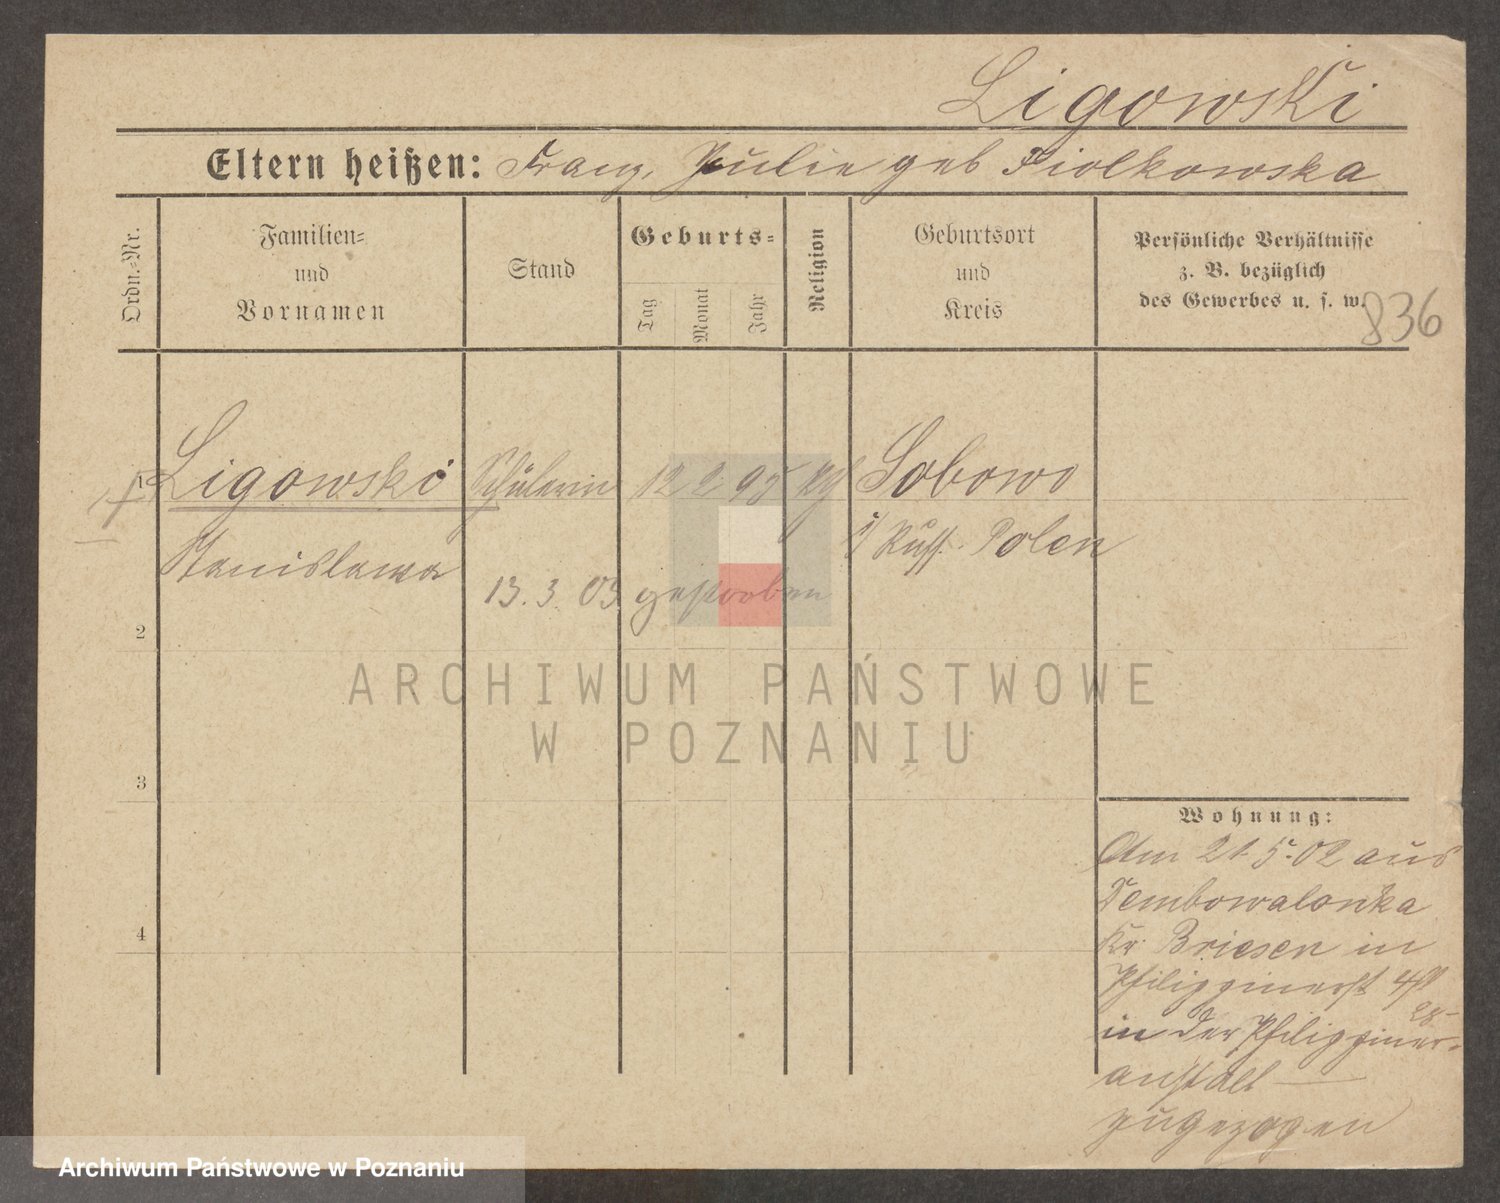 Ligowski
Eltern heißen: Franz, Julie geb Fiolkowska
Ordn.-Nr.
Familien-
und
Vornamen
Stand
Geburts-
Tag
Monat
Jahr
Religion
Geburtsort
und
Kreis
Persönliche Verhältnisse
z. B. bezüglich
des Gewerbes u. s. w.
836
1 Ligowski Schülerin 12 2 95 Sobowo
Stanislawa
i/ Russ. Polen
13. 3. 03 gestorben
2
3
4
ARCHIWUM PAŃSTWOWE
W POZNANIU
Wohnung:
Am 21. 5. 02 aus
Dembowalonka
Kr. Briesen in
Philippinerst 4
in der Philippiner-
anstalt
zugezogen
Archiwum Państwowe w Poznaniu